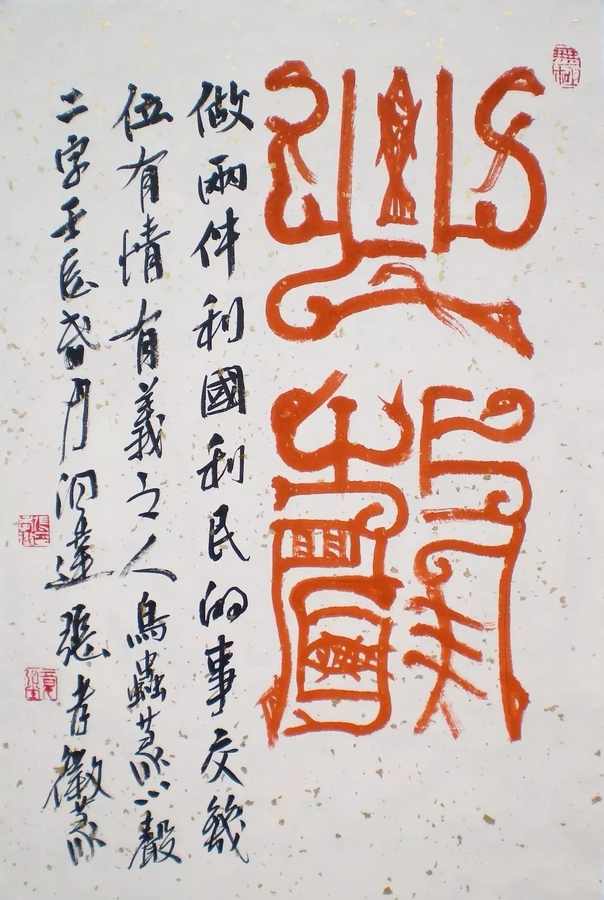 心聲
做兩件利國利民的事交幾
位有情有義之人鳥蟲篆心聲
二字壬辰春月達張孝徽篆